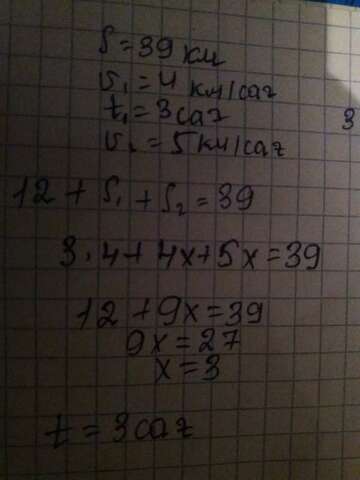 S = 39 км
v₁ = 4 км/саг
t₁ = 3 саг
v₂ = 5 км/саг
3
12 + S₁ + S₂ = 39
3 · 4 + 4x + 5x = 39
12 + 9x = 39
9x = 27
x = 3
t = 3 саг